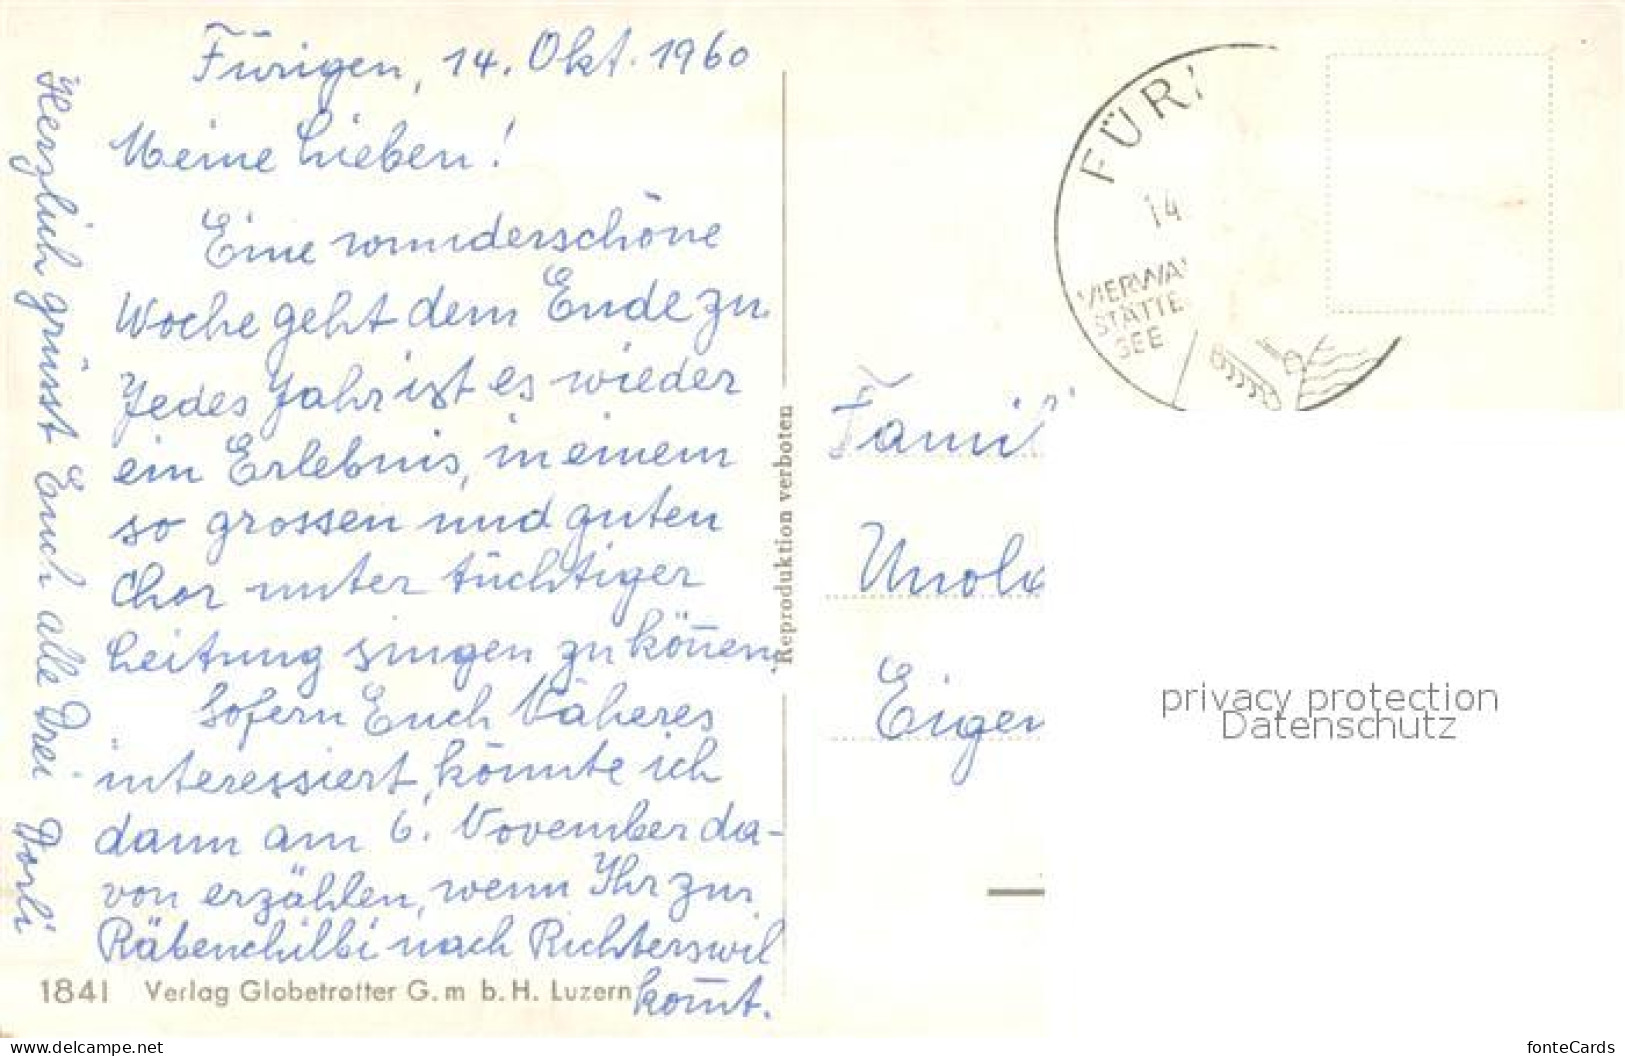 Fürigen, 14. Okt. 1960
Meine Lieben!
Eine wunderschöne
Woche geht dem Ende zu.
Jedes Jahr ist es wieder
ein Erlebnis, in einem
so grossen und guten
Chor unter tüchtiger
Leitung singen zu kön̄en.
Sofern Euch Näheres
interessiert, könnte ich
dann am 6. November da-
von erzählen, wenn Ihr zur
Räbenchilbi nach Richterswil
kom̄t.
Herzlich grüsst Euch alle Drei Dorli
1841 Verlag Globetrotter G.m b.H. Luzern
Reproduktion verboten
FÜRI
14
VIERWA
STÄTTE
SEE
Famil
Eigen
privacy protection
Datenschutz
www.delcampe.net
fonteCards